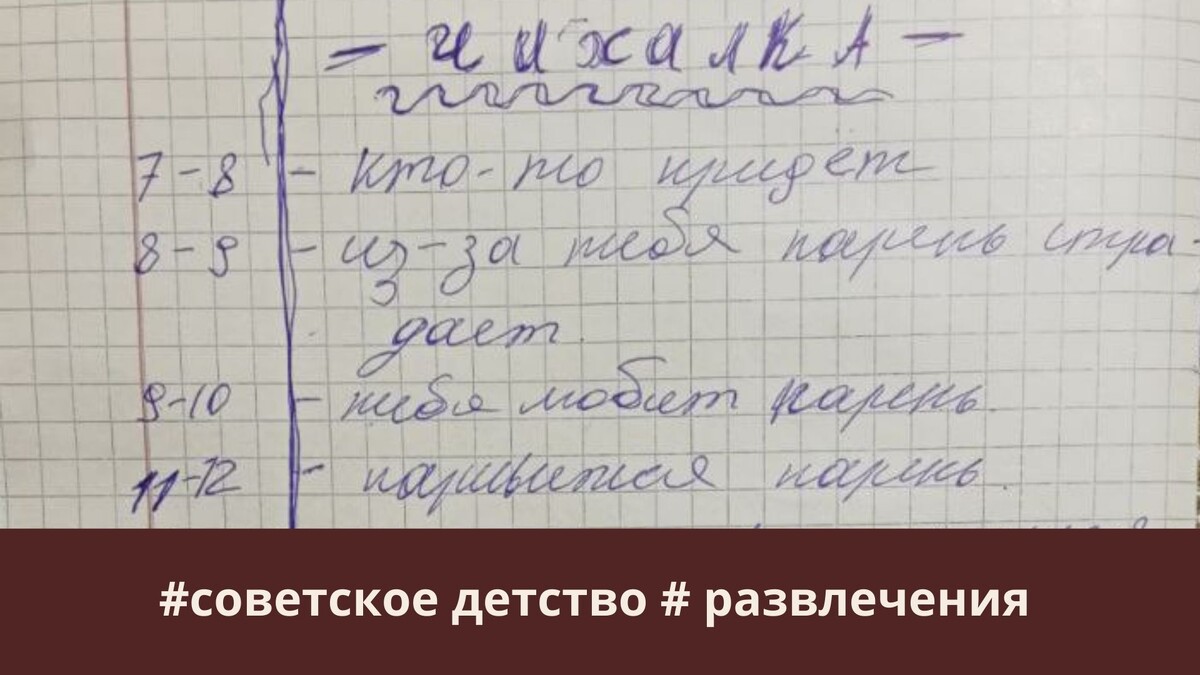 - ЧИХАЛКА -
7-8 - кто-то придёт
8-9 - из-за тебя парень стра-
дает.
9-10 - тебя любит парень.
11-12 - парень.
#советское детство # развлечения